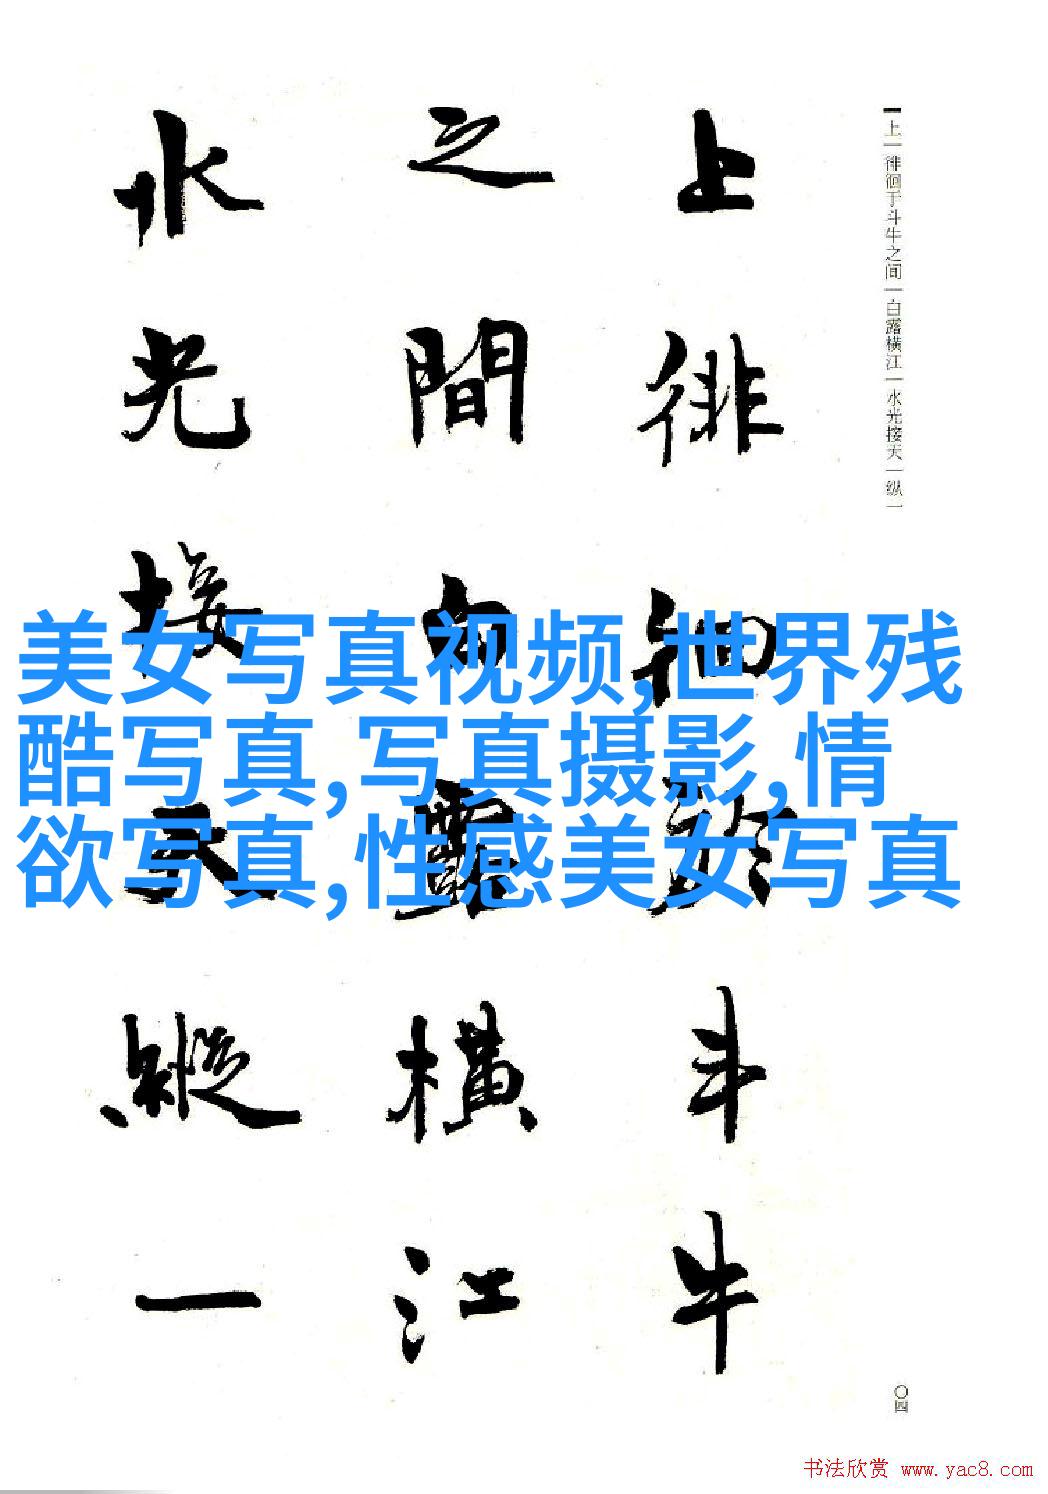 上徘徊於斗牛
之間白露橫江
水光接天縱一
【上】徘徊于斗牛之间【白露横江【水光接天【纵一
美女写真视频,世界残
酷写真,写真摄影,情
欲写真,性感美女写真
〇四
书法欣赏 www.yac8.com